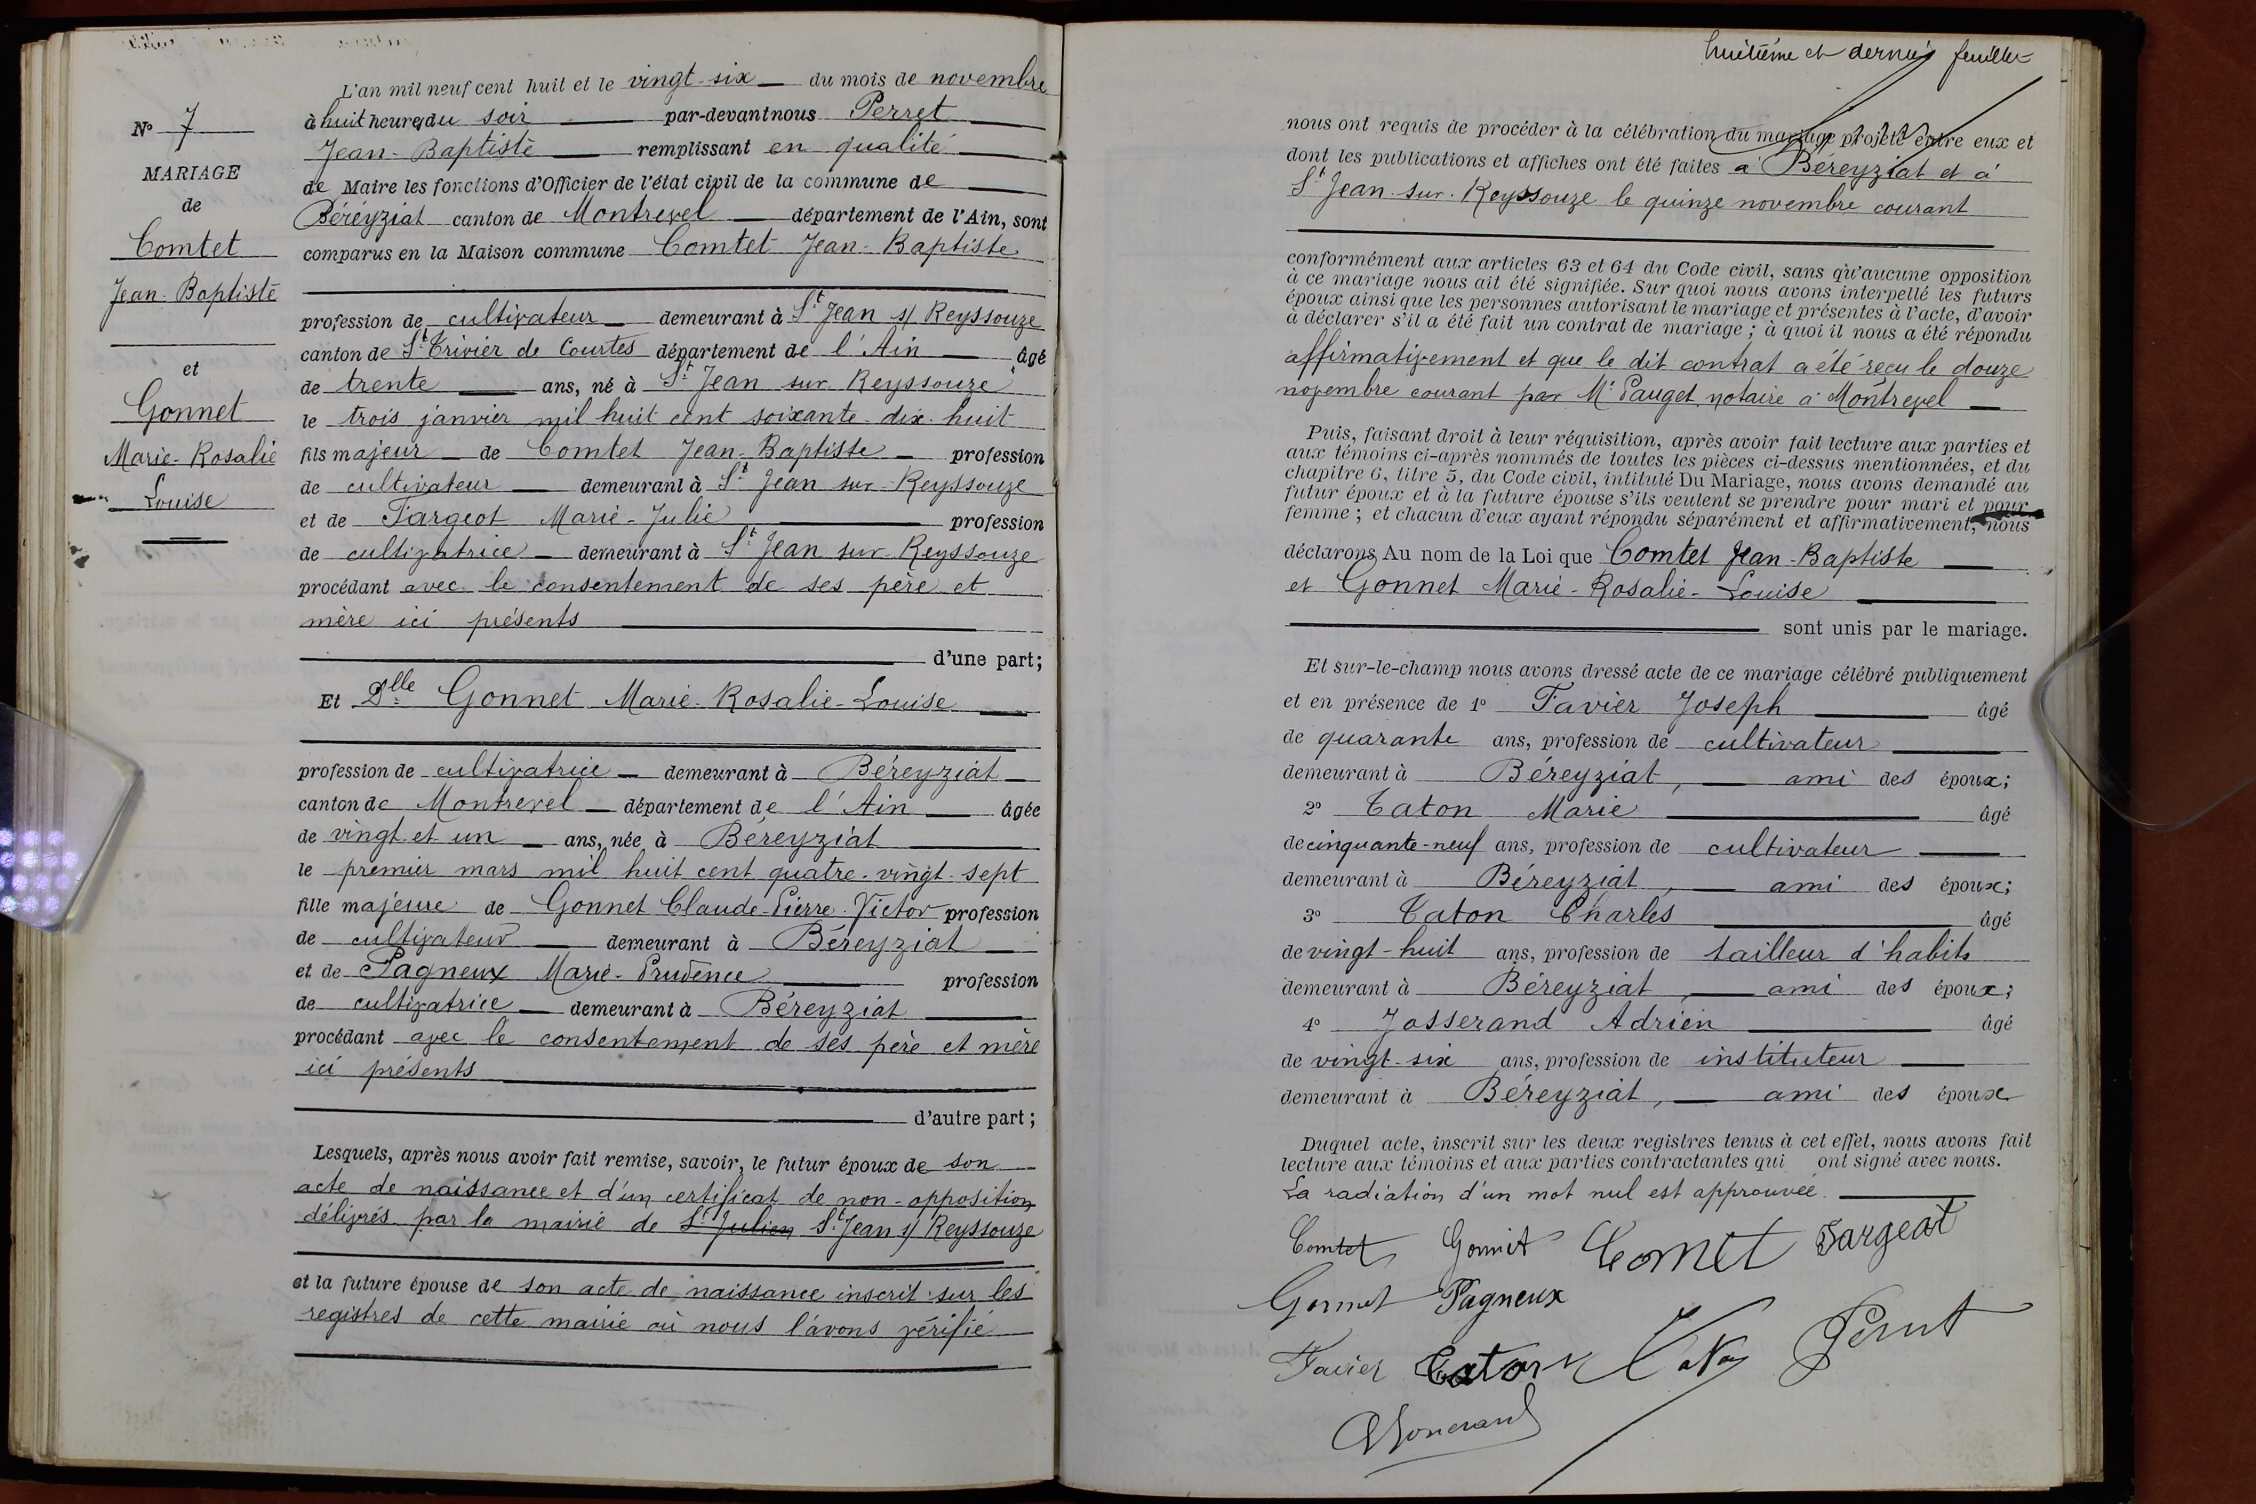 N° 7
MARIAGE
de
Comtet
Jean-Baptiste
et
Gonnet
Marie-Rosalie
Louise
L'an mil neuf cent huit et le vingt-six du mois de novembre
à huit heures du soir par-devant nous Perret
Jean-Baptiste remplissant en qualité
de Maire les fonctions d'Officier de l'état civil de la commune de
Béréyziat canton de Montrevel département de l'Ain, sont
comparus en la Maison commune Comtet Jean-Baptiste
profession de cultivateur demeurant à St Jean s/ Reyssouze
canton de St Trivier de Courtes département de l'Ain âgé
de trente ans, né à St Jean sur Reyssouze
le trois janvier mil huit cent soixante-dix-huit
fils majeur de Comtet Jean-Baptiste profession
de cultivateur demeurant à St Jean sur Reyssouze
et de Fargeot Marie-Julie profession
de cultivatrice demeurant à St Jean sur Reyssouze
procédant avec le consentement de ses père et
mère ici présents
d'une part;
Et Dlle Gonnet Marie-Rosalie-Louise
profession de cultivatrice demeurant à Béreyziat
canton de Montrevel département de l'Ain âgée
de vingt et un ans, née à Béreyziat
le premier mars mil huit cent quatre-vingt-sept
fille majeure de Gonnet Claude-Pierre-Victor profession
de cultivateur demeurant à Béreyziat
et de Pagneux Marie-Prudence profession
de cultivatrice demeurant à Béreyziat
procédant avec le consentement de ses père et mère
ici présents
d'autre part;
Lesquels, après nous avoir fait remise, savoir, le futur époux de son
acte de naissance et d'un certificat de non-opposition
délivrés par la mairie de St Julien St Jean s/ Reyssouze
et la future épouse de son acte de naissance inscrit sur les
registres de cette mairie où nous l'avons vérifié
huitième et dernier feuillet
nous ont requis de procéder à la célébration du mariage projeté entre eux et
dont les publications et affiches ont été faites à Béreyziat et à
St Jean-sur-Reyssouze le quinze novembre courant
conformément aux articles 63 et 64 du Code civil, sans qu'aucune opposition
à ce mariage nous ait été signifiée. Sur quoi nous avons interpellé les futurs
époux ainsi que les personnes autorisant le mariage et présentes à l'acte, d'avoir
à déclarer s'il a été fait un contrat de mariage; à quoi il nous a été répondu
affirmativement et que le dit contrat a été reçu le douze
novembre courant par Me Pauget notaire à Montrevel
Puis, faisant droit à leur réquisition, après avoir fait lecture aux parties et
aux témoins ci-après nommés de toutes les pièces ci-dessus mentionnées, et du
chapitre 6, titre 5, du Code civil, intitulé Du Mariage, nous avons demandé au
futur époux et à la future épouse s'ils veulent se prendre pour mari et pour
femme; et chacun d'eux ayant répondu séparément et affirmativement, nous
déclarons Au nom de la Loi que Comtet Jean-Baptiste
et Gonnet Marie-Rosalie-Louise
sont unis par le mariage.
Et sur-le-champ nous avons dressé acte de ce mariage célébré publiquement
et en présence de 1° Favier Joseph âgé
de quarante ans, profession de cultivateur
demeurant à Béreyziat, ami des époux;
2° Caton Marie âgé
de cinquante-neuf ans, profession de cultivateur
demeurant à Béreyziat, ami des époux;
3° Caton Charles âgé
de vingt-huit ans, profession de tailleur d'habits
demeurant à Béreyziat, ami des époux;
4° Josserand Adrien âgé
de vingt-six ans, profession de instituteur
demeurant à Béreyziat, ami des époux
Duquel acte, inscrit sur les deux registres tenus à cet effet, nous avons fait
lecture aux témoins et aux parties contractantes qui ont signé avec nous.
La radiation d'un mot nul est approuvée.
Comtet Gonnet Comtet Fargeot
Gonnet Pagneux
Favier Caton Caton Perret
A Josserand